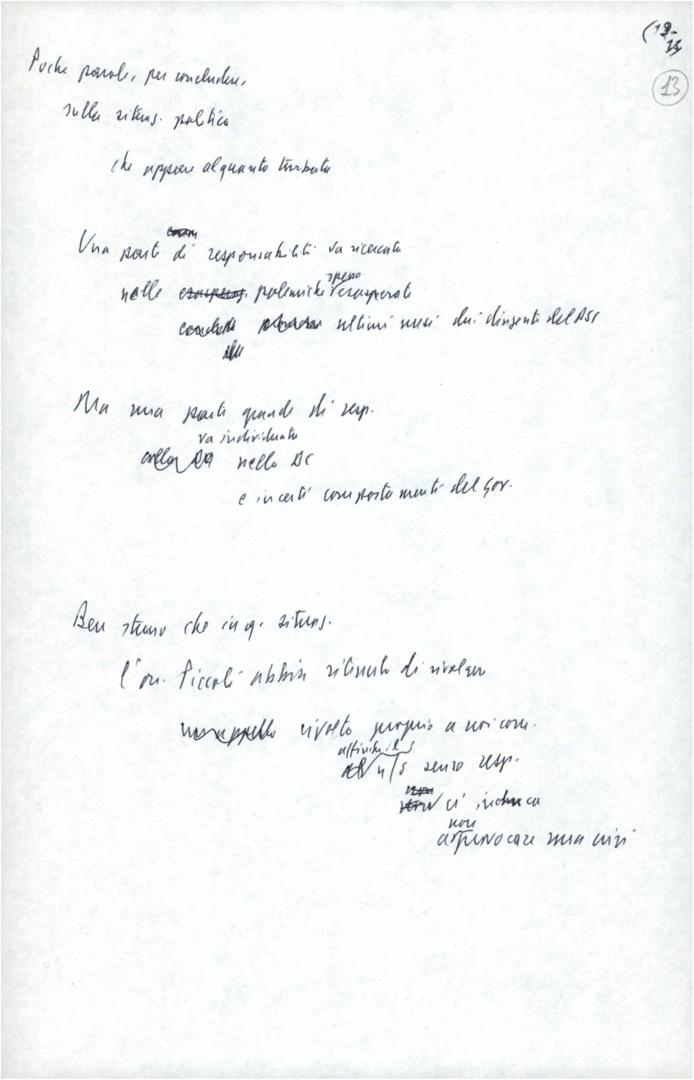 (12-
13
Poche parole, per concludere,
sulla situaz. politica
che appare alquanto turbata
Una parte di responsabilità va ricercata
spesso
nelle polemiche esasperate
ultimi mesi dei dirigenti del PSI
Ma una parte grande di resp.
va individuata
nella DC
e incerti comportamenti del Gov.
Ben strano che in q. situaz.
l'on. Piccoli abbia ritenuto di rivolgere
un appello rivolto proprio a noi com.
senso resp.
ci induca
non
a provocare una crisi